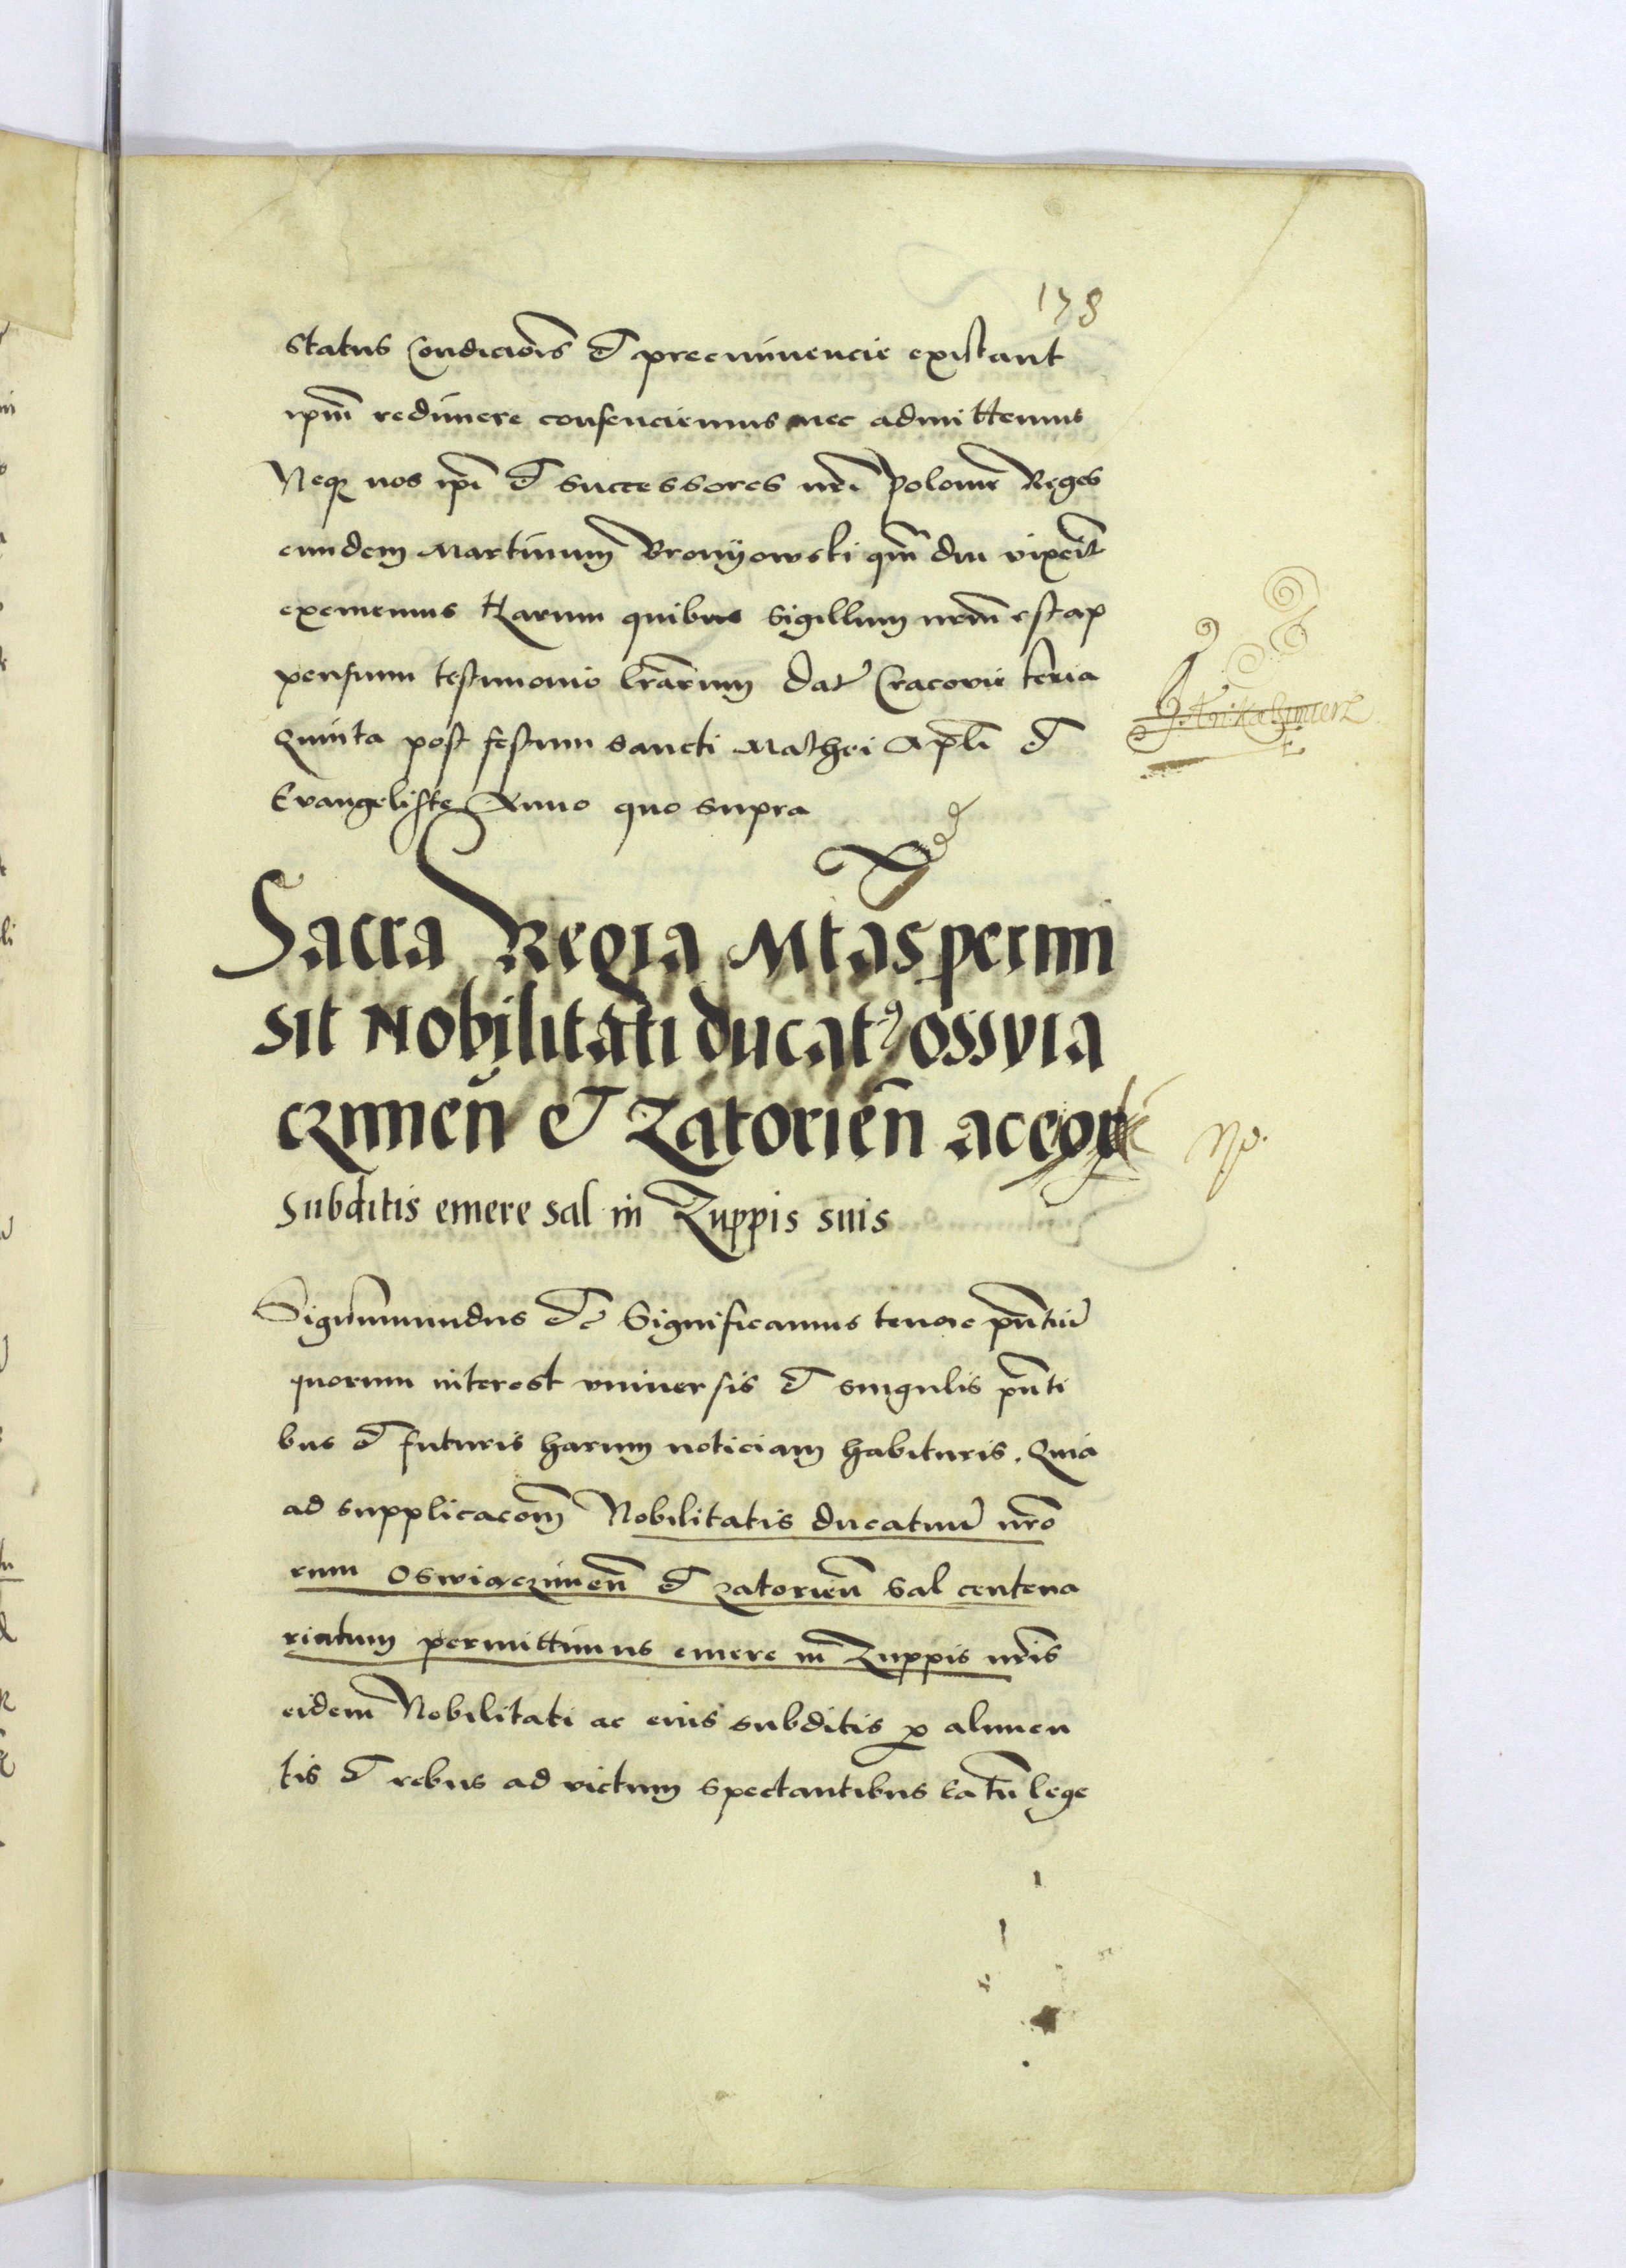 178
status Condicionis et preeminencie existant
ipm̄ redimere consenciemus nec admittemus
Neqz nos ipī et successores nrī Polonie Reges
eundem Martinum Bronyowski qm̄ diu vixerit
eximemus Harum quibus sigillum nrm̄ est ap
pensum testimonio lrārum Dat Cracovie feria
Quinta post festum sancti Mathei Apli et
Evangeliste Anno quo supra
Sacra Regia Mtas permi
sit Nobilitati ducatꝰ ossvia
czimen̄ et zatorien̄ ac eor
subditis emere sal in Zuppis suis
Sigismundus etc Significamus tenore pn̄tiū
quorum interest universis et singulis pn̄ti
bus et futuris harum noticiam habituris. Quia
ad supplicacom̄ Nobilitatis ducatuū nrō
rum Oswiaczimen̄ et zatorien̄ sal centena
riatum permittimus emere in Zuppis nrīs
eidem Nobilitati ac eius subditis p alimen
tis et rebus ad victum spectantibus Ea tn̄ lege